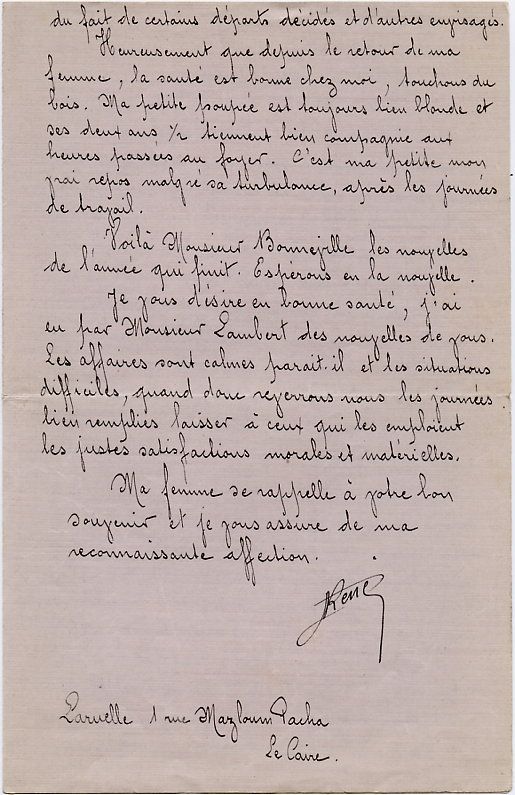 du fait de certains départs décidés et d'autres envisagés.
Heureusement que depuis le retour de ma
femme, la santé est bonne chez moi, touchons du
bois. Ma petite poupée est toujours bien blonde et
ses deux ans ½ tiennent bien compagnie aux
heures passées au foyer. C'est ma petite mon
vrai repos malgré sa turbulance, après les journées
de travail.
Voilà Monsieur Bonnejille les nouvelles
de l'année qui finit. Espérons en la nouvelle.
Je vous désire en bonne santé, j'ai
eu par Monsieur Lambert des nouvelles de vous.
Les affaires sont calmes parait-il et les situations
difficiles, quand donc reverrons nous les journées
bien remplies laisser à ceux qui les emploient
les justes satisfactions morales et matérielles.
Ma femme se rappelle à votre bon
souvenir et je vous assure de ma
reconnaissante affection.
Larvelle 1 rue Mazloum Pacha
Le Caire.